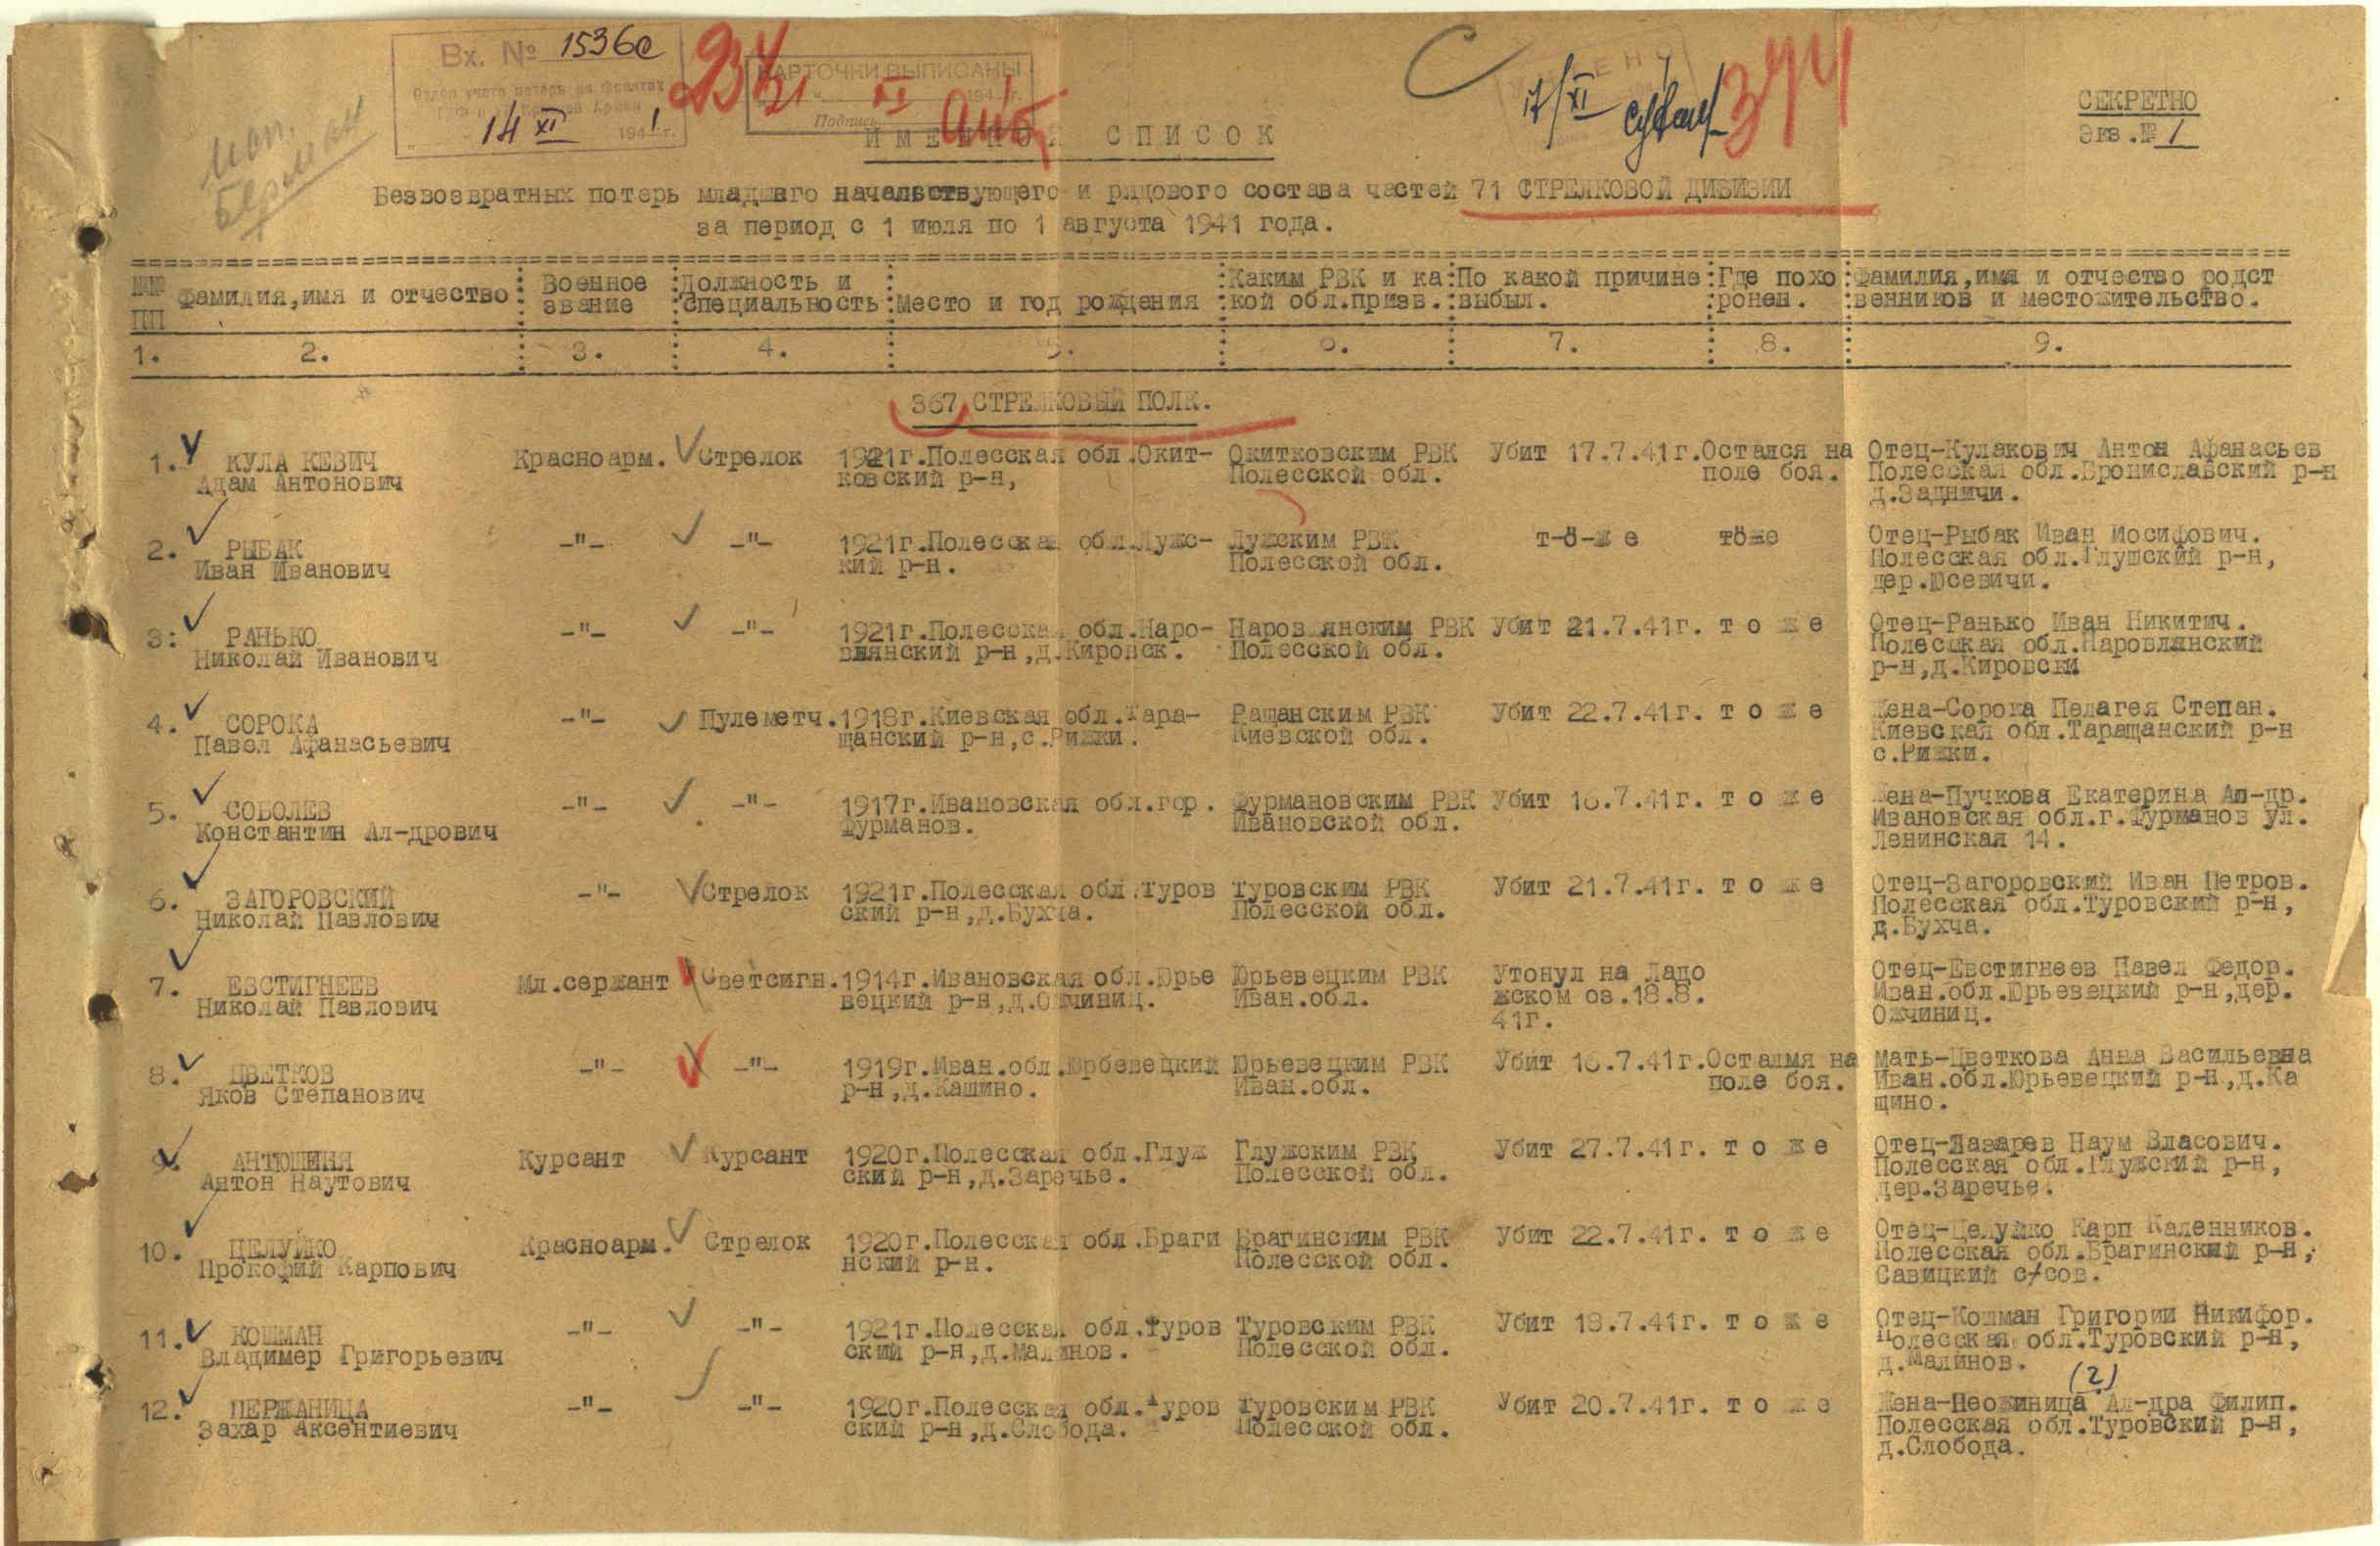 Вх. № 1536с
Отдел учета потерь на фронтах
14 XI 1941 г.
КАРТОЧКИ ВЫПИСАНЫ
XI 194 г.
Подпись
17/XI
374
СЕКРЕТНО
Экз.№ 1
ИМЕННОЙ СПИСОК
Безвозвратных потерь младшего начальствующего и рядового состава частей 71 СТРЕЛКОВОЙ ДИВИЗИИ
за период с 1 июля по 1 августа 1941 года.
№№ пп : Фамилия,имя и отчество : Военное звание : Должность и специальность : Место и год рождения : Каким РВК и ка кой обл.призв. : По какой причине выбыл. : Где похо ронен. : Фамилия,имя и отчество родст венников и местожительство.
1. 2. 3. 4. 5. 6. 7. 8. 9.
367 СТРЕЛКОВЫЙ ПОЛК.
1. КУЛА КЕВИЧ Красноарм. Стрелок 1921г.Полесская обл.Окит- Окитковским РВК Убит 17.7.41г. Остался на Отец-Кулакович Антон Афанасьев
Адам Антонович ковский р-н, Полесской обл. поле боя. Полесская обл.Брониславский р-н
д.Задничи.
2. РЫБАК -"- -"- 1921г.Полесская обл.Лужс- Лужским РВК т-о-ж е тоже Отец-Рыбак Иван Иосифович.
Иван Иванович кий р-н. Полесской обл. Полесская обл.Глушский р-н,
дер.Юсевичи.
3: РАНЬКО -"- -"- 1921г.Полесская обл.Наро- Наровлянским РВК Убит 21.7.41г. т о ж е Отец-Ранько Иван Никитич.
Николай Иванович влянский р-н,д.Кировск. Полесской обл. Полесская обл.Наровлянский
р-н,д.Кировски
4. СОРОКА -"- Пулеметч. 1918г.Киевская обл.Тара- Ращанским РВК Убит 22.7.41г. т о ж е Жена-Сорока Пелагея Степан.
Павел Афанасьевич щанский р-н,с.Рижки. Киевской обл. Киевская обл.Таращанский р-н
с.Рижки.
5. СОБОЛЕВ -"- -"- 1917г.Ивановская обл.гор. Фурмановским РВК Убит 16.7.41г. т о ж е Жена-Пучкова Екатерина Ал-др.
Константин Ал-дрович Фурманов. Ивановской обл. Ивановская обл.г.Фурманов ул.
Ленинская 14.
6. ЗАГОРОВСКИЙ -"- Стрелок 1921г.Полесская обл.Туров Туровским РВК Убит 21.7.41г. т о ж е Отец-Загоровский Иван Петров.
Николай Павлович ский р-н,д.Бухча. Полесской обл. Полесская обл.Туровский р-н,
д.Бухча.
7. ЕВСТИГНЕЕВ Мл.сержант Светсигн. 1914г.Ивановская обл.Юрье Юрьевецким РВК Утонул на Ладо Отец-Евстигнеев Павел Федор.
Николай Павлович вецкий р-н,д.Ожчиниц. Иван.обл. жском оз.18.8. Иван.обл.Юрьевецкий р-н,дер.
41г. Ожчиниц.
8. ЦВЕТКОВ -"- -"- 1919г.Иван.обл.Юрбевецкий Юрьевецким РВК Убит 16.7.41г. Осталмя на Мать-Цветкова Анна Васильевна
Яков Степанович р-н,д.Кашино. Иван.обл. поле боя. Иван.обл.Юрьевецкий р-н,д.Ка
щино.
9. АНТЮШЕНЯ Курсант Курсант 1920г.Полесская обл.Глуж Глужским РВК Убит 27.7.41г. т о ж е Отец-Лазарев Наум Власович.
Антон Наутович ский р-н,д.Заречье. Полесской обл. Полесская обл.Глужский р-н,
дер.Заречье.
10. ЦЕЛУЙКО Красноарм. Стрелок 1920г.Полесская обл.Браги Брагинским РВК Убит 22.7.41г. т о ж е Отец-Целуйко Карп Каленников.
Прокофий Карпович нский р-н. Полесской обл. Полесская обл.Брагинский р-н,
Савицкий с/сов.
11. КОШМАН -"- -"- 1921г.Полесская обл.Туров Туровским РВК Убит 18.7.41г. т о ж е Отец-Кошман Григории Никифор.
Владимер Григорьевич ский р-н,д.Малинов. Полесской обл. Полесская обл.Туровский р-н,
д.Малинов.
(2)
12. ПЕРЖАНИЦА -"- -"- 1920г.Полесская обл.Туров Туровским РВК Убит 20.7.41г. т о ж е Жена-Неожиница Ал-дра Филип.
Захар Аксентиевич ский р-н,д.Слобода. Полесской обл. Полесская обл.Туровский р-н,
д.Слобода.